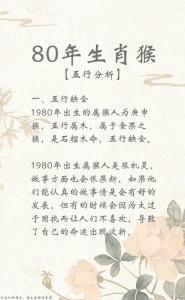 80年生肖猴
【五行分析】
一、五行缺金
1980年出生的属猴人为庚申
猴，五行属木，属于食果之
猴，是石榴木命，五行缺金。
1980年出生属猴人是很机灵，
做事方面也会很果断，如果他
们能认真的做事情是会有好的
发展，但有的时候会因为太过
于圆挑而让人们不喜欢，导致
了自己的命运出现波折。